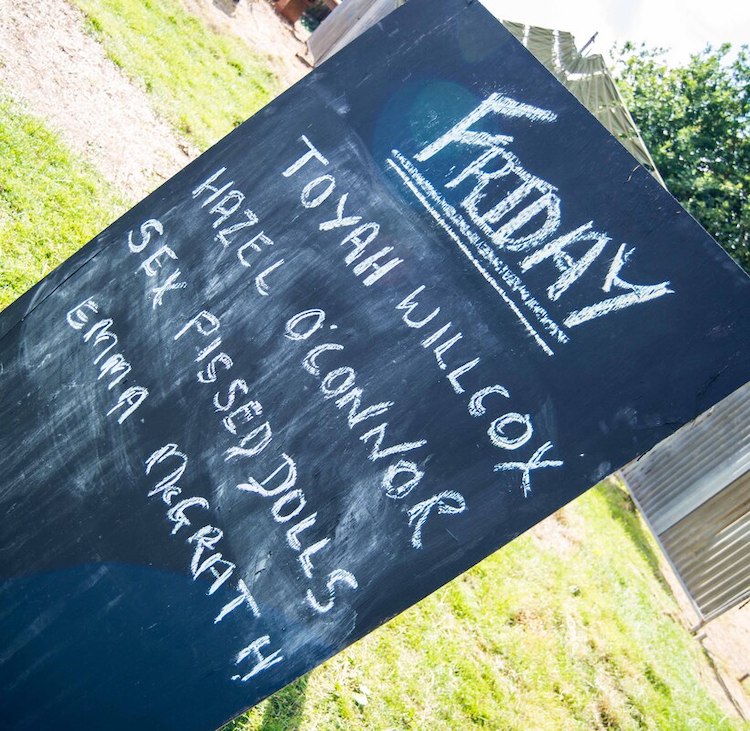 FRIDAY
TOYAH WILLCOX
HAZEL O'CONNOR
SEX PISSED DOLLS
EMMA McGRATH